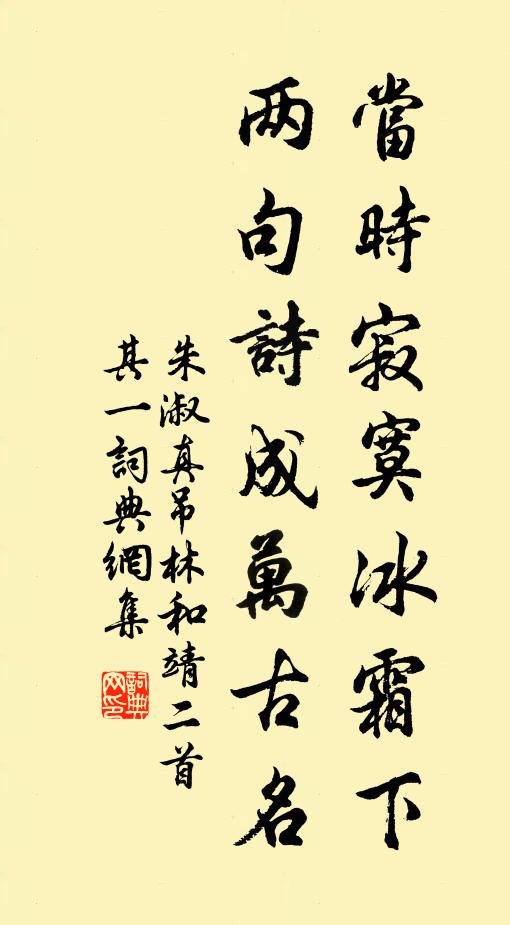 當時寂寞冰霜下
两句詩成萬古名
朱淑真吊林和靖二首
其一詞典網集
詞典網印